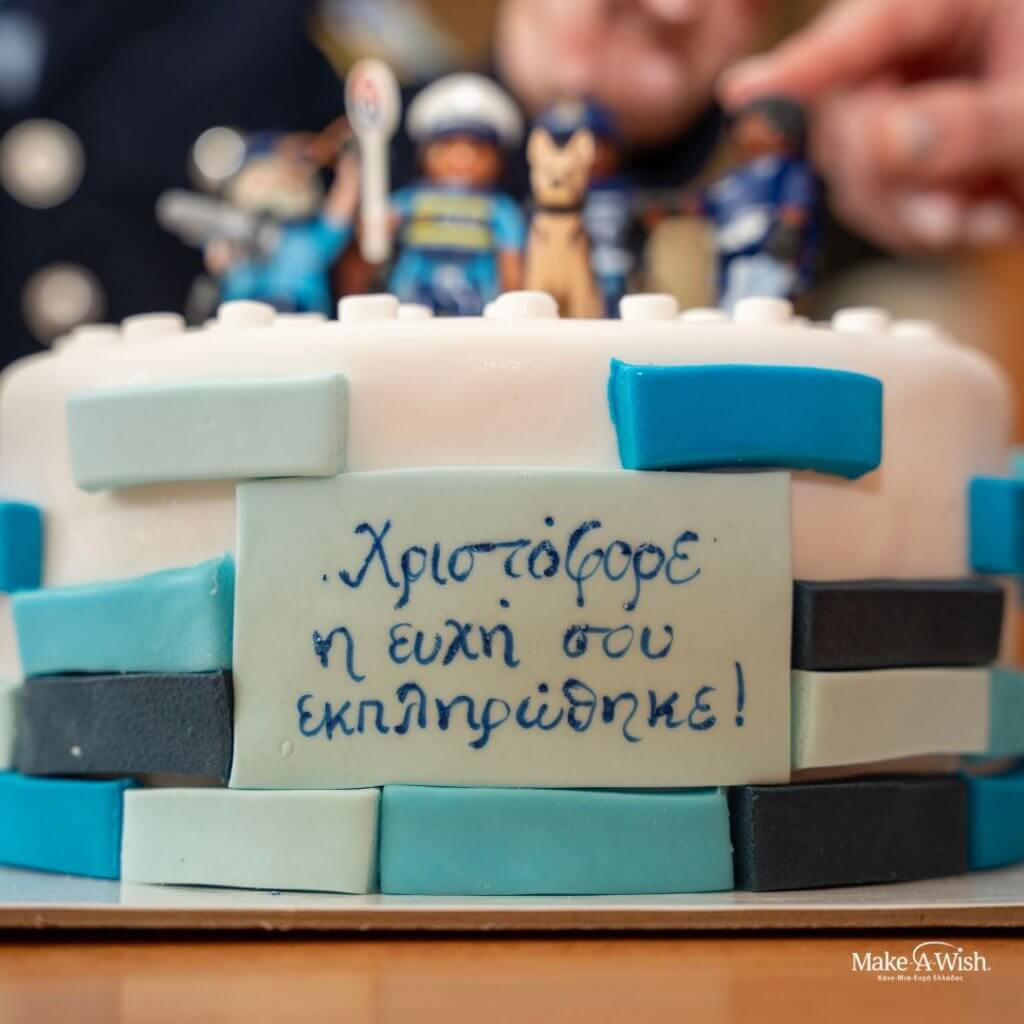 Χριστόφορε
η ευχή σου
εκπληρώθηκε!
Make-A-Wish.
Κάνε-Μια-Ευχή Ελλάδος